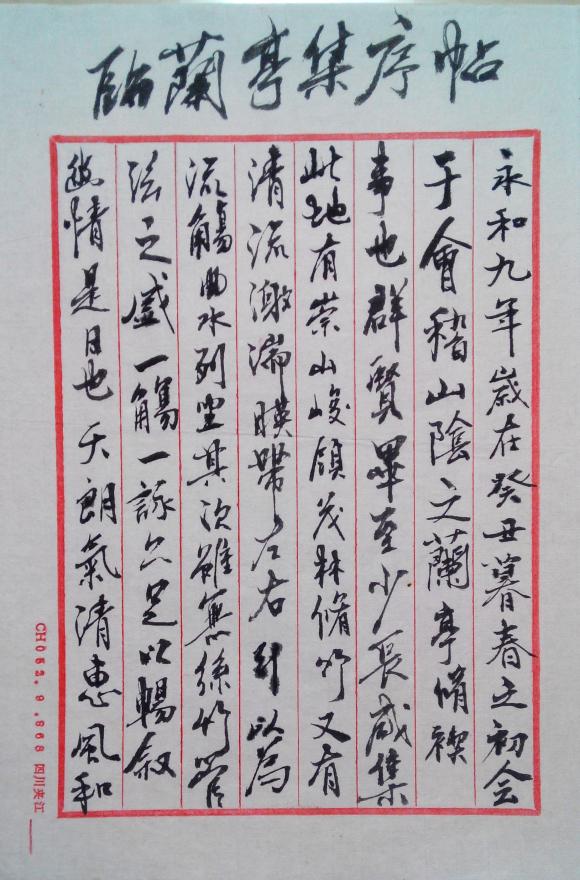 临蘭亭集序帖
永和九年歲在癸丑暮春之初会
于會稽山陰之蘭亭脩禊
事也群賢畢至少長咸集
此地有崇山峻領茂林脩竹又有
清流激湍暎帶左右引以為
流觴曲水列坐其次雖無絲竹管
弦之盛一觴一詠亦足以暢叙
幽情是日也天朗氣清惠風和
CH053.9.868 四川夹江